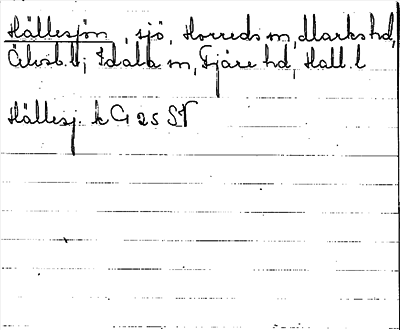 Hällesjön, sjö, Horreds sn, Marks hd,
Älvsb. l; Idala sn, Fjäre hd, Hall. l
Hällesj. k G 25 SV